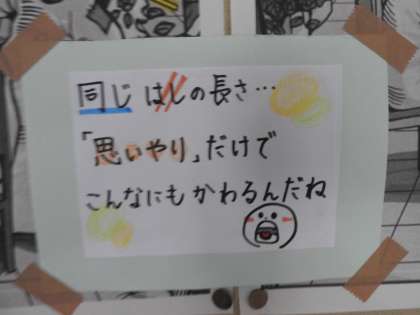 同じ はしの長さ…
「思いやり」だけで
こんなにも かわるんだね